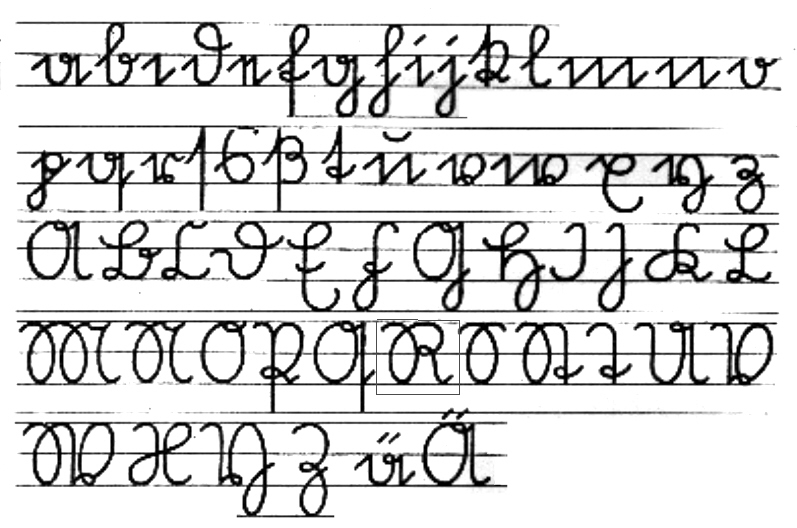 a b c d e f g h i j k l m n o
p q r ſ s ß t u v w x y z
A B C D E F G H I J K L
M N O P Q R S St T U V
W X Y Z ä Ä